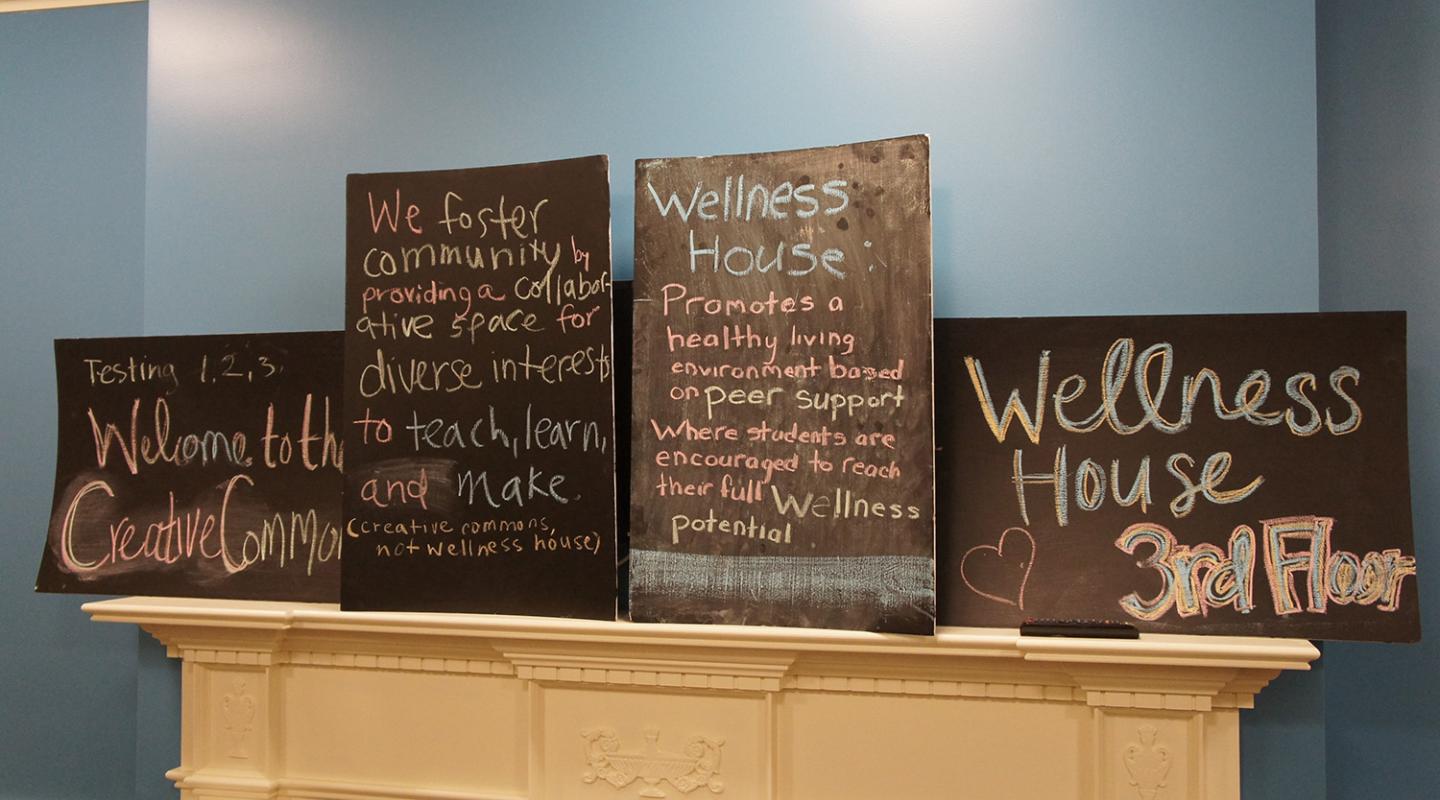 Testing 1, 2, 3.
Welcome to the
Creative Common
We foster
community by
providing a collabor-
ative space for
diverse interests
to teach, learn,
and make.
(creative commons,
not wellness house)
Wellness
House:
Promotes a
healthy living
environment based
on peer support
Where students are
encouraged to reach
their full Wellness
potential
Wellness
House
3rd Floor